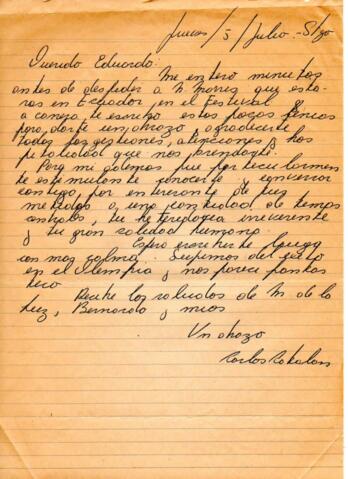 Jueves / 3 / Julio
Querido Eduardo:
Me entero minutos
antes de despedir a M. que esta-
rás en Ecuador en el Festival
te escribo estas pocas líneas
para darte un abrazo, agradecerte
todas las gestiones, atenciones y hos
pitalidad que nos brindaste.
Para mí además fue particularmen
te estimulante conocerte y conversar
contigo, por enterarme de tus
métodos a una cantidad de temas
centrales, tu irreverente
y tu gran calidad humana.
Espero escribirte luego
con más calma. Supimos del éxito
en el Olempia y nos parece fantás
tico
Recibe los saludos de M. de la
Luz, Bernardo y míos
Un abrazo
Carlos